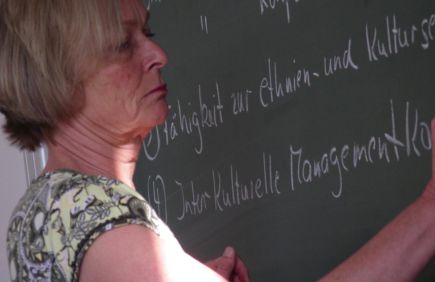 "
Fähigkeit zur ethnien- und kulturse
(4) Interkulturelle Managementko